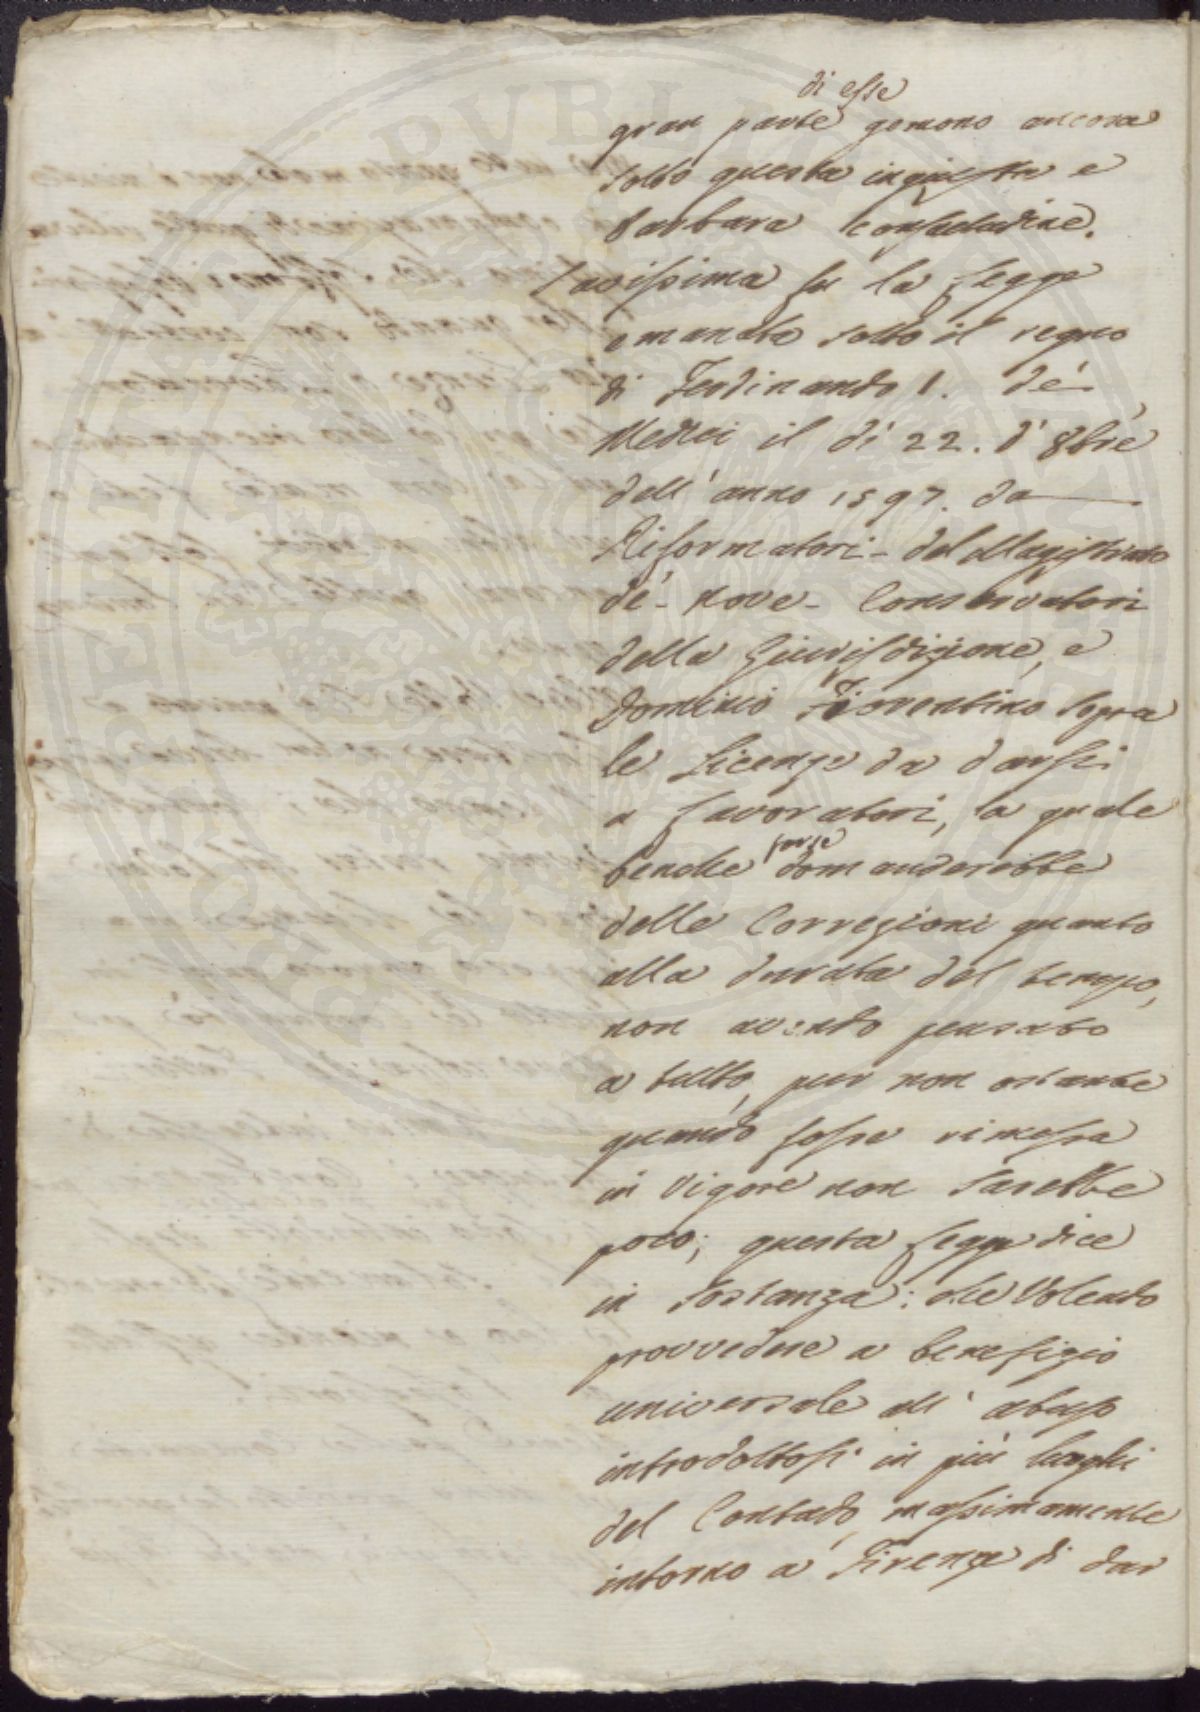 di esse
gran parte gemono ancora
sotto questa ingiusta e
barbara consuetudine.
Savissima fu la Legge
emanata sotto il regno
di Ferdinando I. dé
Medici il dì 22. d'8bre
dell'anno 1597. da
Riformatori del Magistrato
dé nove Conservatori
della Giurisdizione, e
Dominio Fiorentino sopra
le Licenze da darsi
a Lavoratori, la quale
forse
benche domanderebbe
delle Correzioni quanto
alla durata del tempo,
non avendo pensato
a tutto, pur non ostante
quando fosse rimessa
in vigore non sarebbe
poco; questa Legge dice
in sostanza: che Volendo
provvedere a benefizio
universale all' abuso
introdottosi in più luoghi
del Contado, massimamente
intorno a Firenze di dar